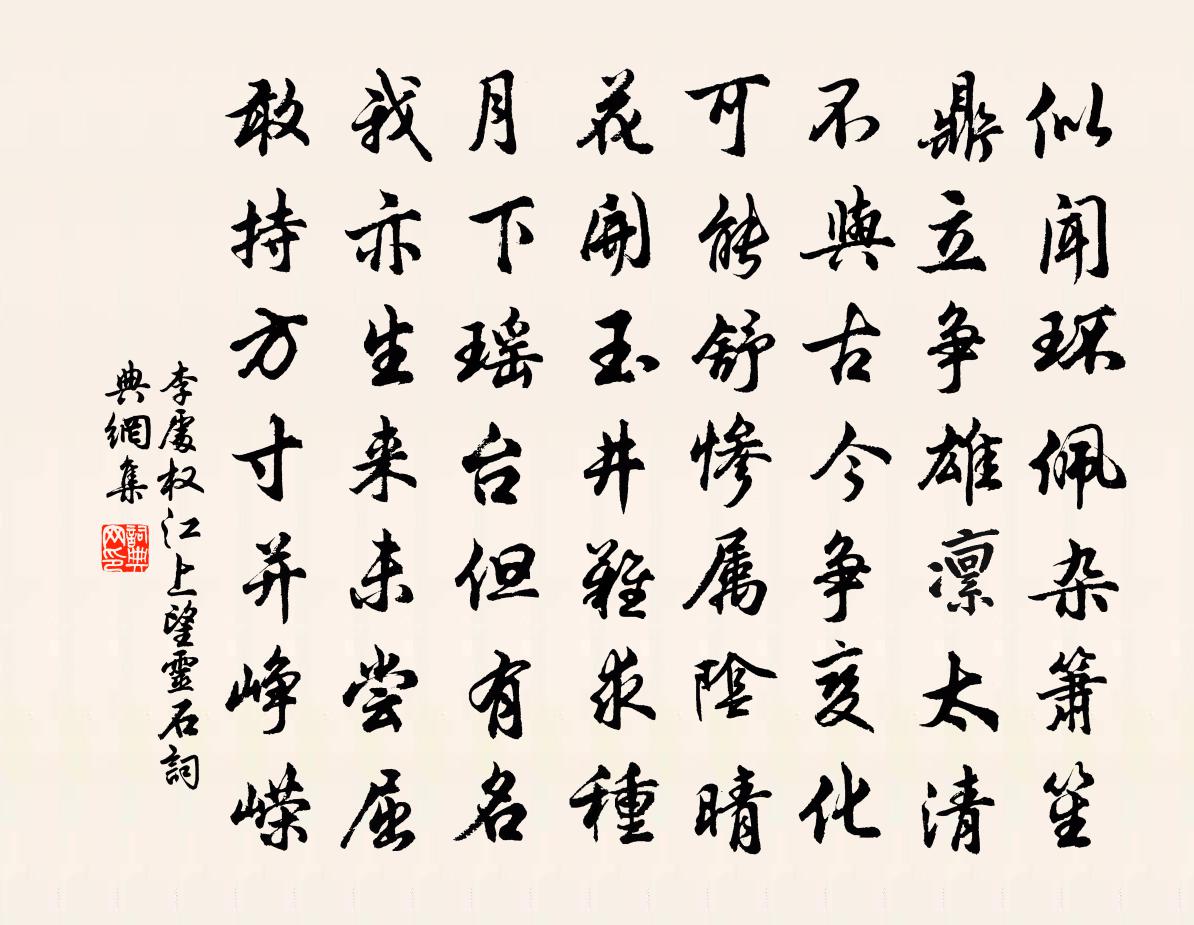 似闻环佩杂箫笙
鼎立争雄凛太清
不與古今争变化
可能舒惨属陰晴
花開玉井難求種
月下瑶台但有名
我亦生来未尝屈
敢持方寸并峥嵘
李處权江上望靈石詞
典網集
詞典
网印